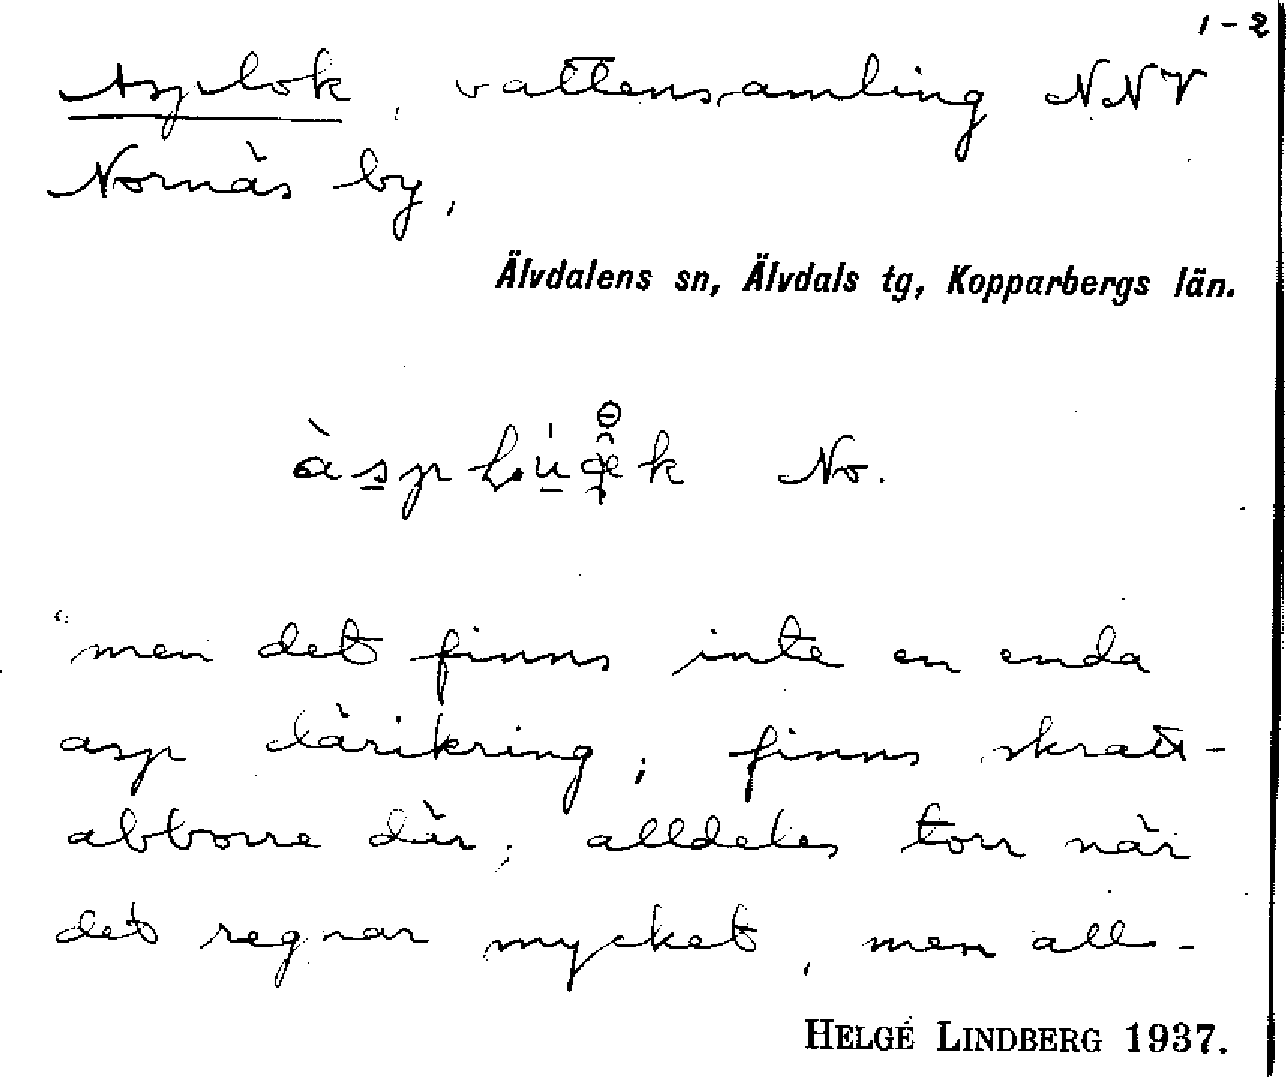 1-2
Asplok, vattensamling NNV
Nornäs by,
Älvdalens sn, Älvdals tg, Kopparbergs län.
No.
"men det finns inte en enda
asp däríkring, finns skratt-
abborre där; alldeles torr när
det regnar mycket, men all-
HELGE LINDBERG 1937.